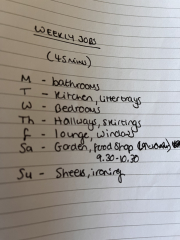 WEEKLY JOBS
(45mins)
M - bathrooms
T - Kitchen, litter trays
W - Bedrooms
Th - Hallways, skirtings
F - lounge, windows
Sa - Garden, food shop
9.30-10.30
Su - Sheets, ironing